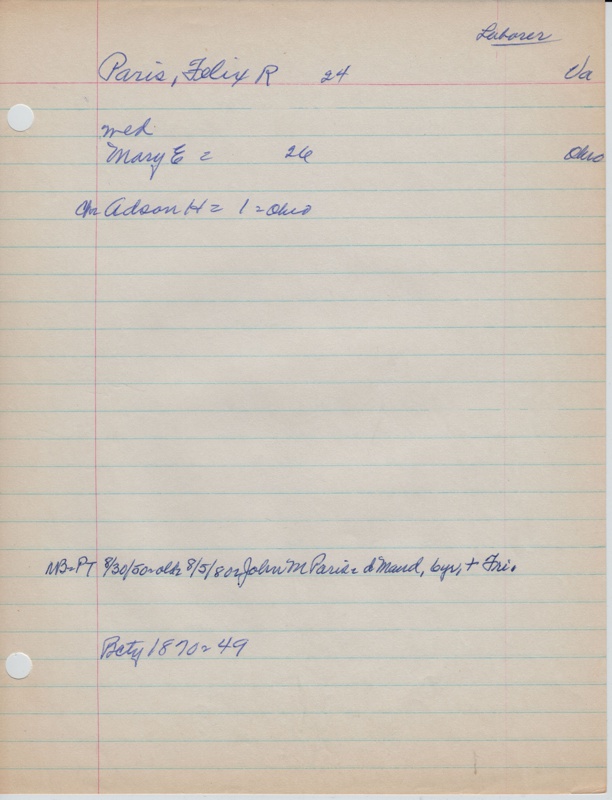 Laborer
Paris, Felix R 24 Va
med
Mary E = 26 Ohio
Ch Adson H = 1 = Ohio
NB = PT 8/30/50 = obt 8/5/80 = John M Paris = d Maud, 6yr, + Fri.
Bcty 1870 = 49